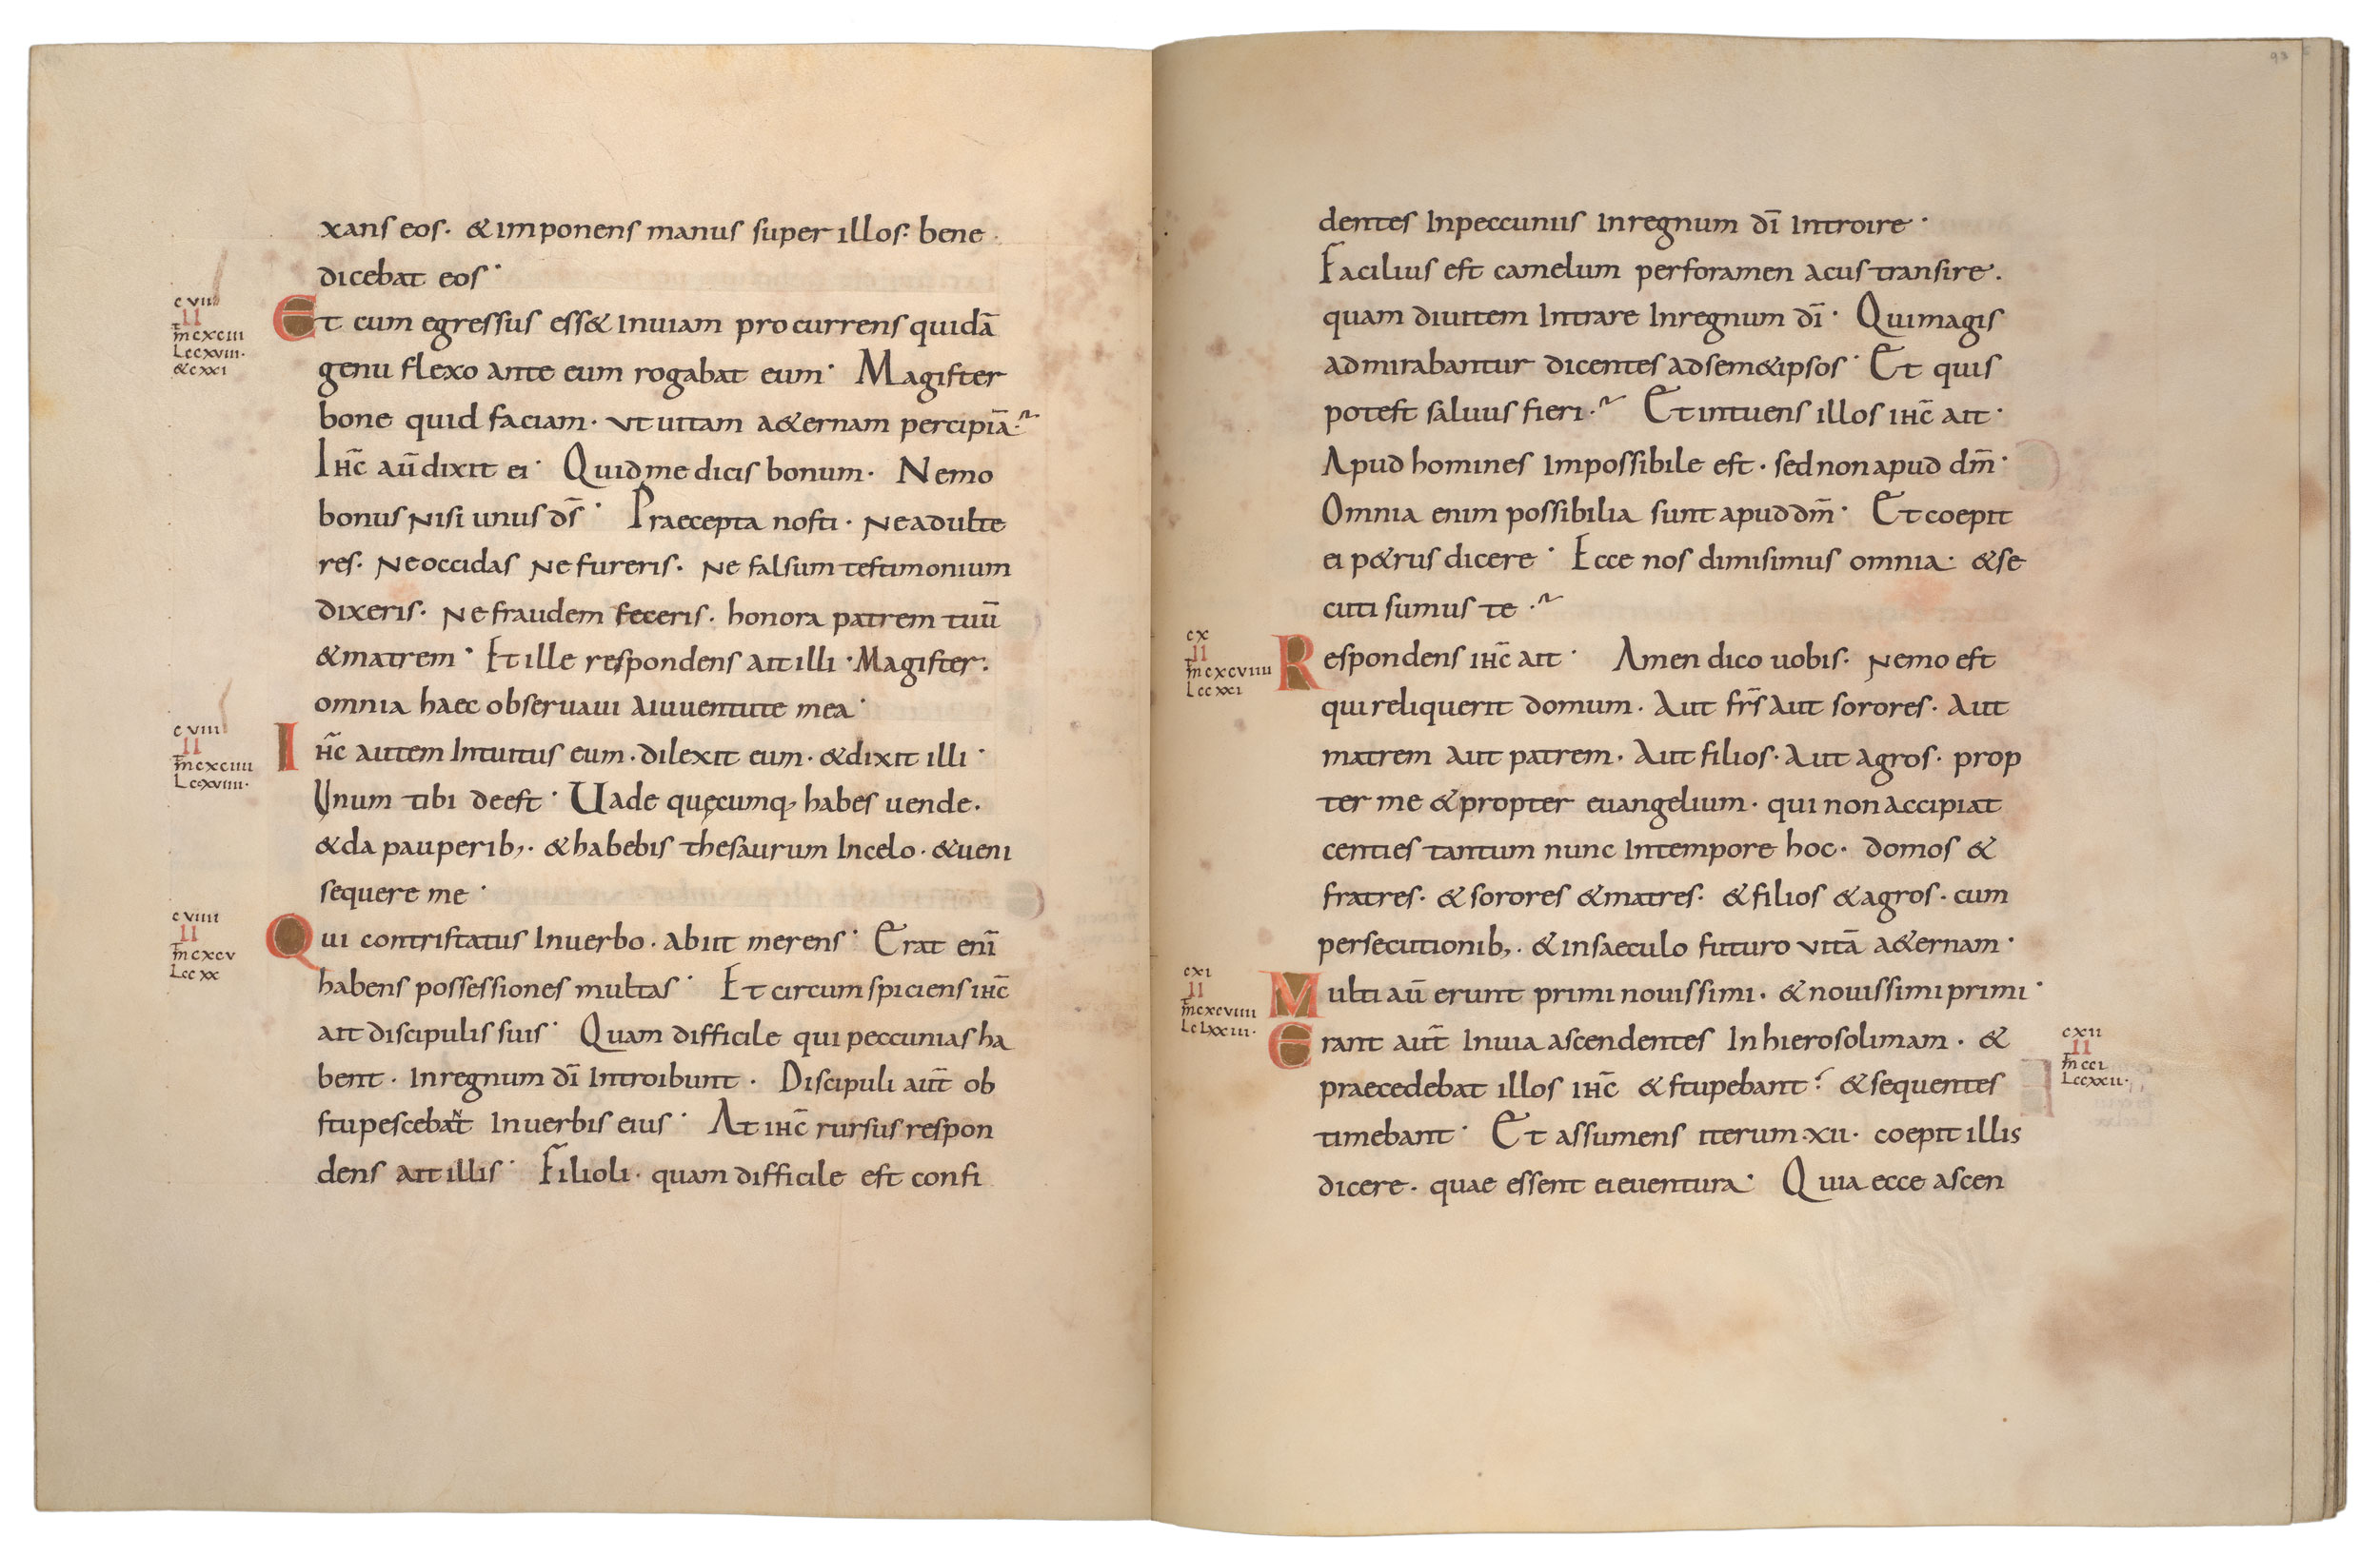 xans eos. & imponens manus super illos. bene
dicebat eos.
c vii
II
m̄ cxciii
L ccxviii.
& cxxi
Et cum egressus ess& Inuiam procurrens quidā
genu flexo ante eum rogabat eum. Magister
bone quid faciam. ut uitam a&ernam percipiā.
Ihc̄ aū dixit ei. Quid me dicis bonum. Nemo
bonus Nisi unus ds̄. Praecepta nosti. Ne adulte
res. Ne occidas Ne fureris. Ne falsum testimonium
dixeris. Ne fraudem feceris. honora patrem tuū
& matrem. Et ille respondens ait illi. Magister.
omnia haec obseruaui a iuuentute mea.
c viii
II
m̄ cxciiii
L ccxviiii.
Ihc̄ autem Intuitus eum. dilexit eum. & dixit illi.
Unum tibi deest. Uade quęcumq; habes uende.
& da pauperib;. & habebis thesaurum Incelo. & ueni
sequere me.
c viiii
II
m̄ cxcv
L cc xx
Qui contristatus Inuerbo. abiit merens. Erat enī
habens possessiones multas. Et circumspiciens ihc̄
ait discipulis suis. Quam difficile qui peccunias ha
bent. Inregnum dī Introibunt. Discipuli aut̄ ob
stupescebant Inuerbis eius. At ihc̄ rursus respon
dens ait illis. Filioli. quam difficile est confi
93
dentes Inpeccuniis Inregnum dī Introire.
Facilius est camelum per foramen acus transire.
quam diuitem Intrare Inregnum dī. Qui magis
admirabantur dicentes adsem&ipsos. Et quis
potest saluus fieri. Et intuens illos ihc̄ ait.
Apud homines Impossibile est. sed non apud dm̄.
Omnia enim possibilia sunt apud dm̄. Et coepit
ei p&rus dicere. Ecce nos dimisimus omnia. & se
cuti sumus te.
cx
II
m̄ cxcviiii
L ccxxi
Respondens ihc̄ ait. Amen dico uobis. Nemo est
qui reliquerit domum. Aut frs̄ aut sorores. Aut
matrem aut patrem. Aut filios. Aut agros. prop
ter me & propter euangelium. qui non accipiat
centies tantum nunc Intempore hoc. domos &
fratres. & sorores & matres. & filios & agros. cum
persecutionib;. & insaeculo futuro vitā a&ernam.
cxi
II
m̄ cxcviiii
L clxxiii.
Multi aū erunt primi nouissimi. & nouissimi primi.
Erant aut̄ Inuia ascendentes Inhierosolimam. &
cxii
II
m̄ cci
L ccxxii.
praecedebat illos ihc̄ & stupebant. & sequentes
timebant. Et assumens iterum .xii. coepit illis
dicere. quae essent ei euentura. Quia ecce ascen